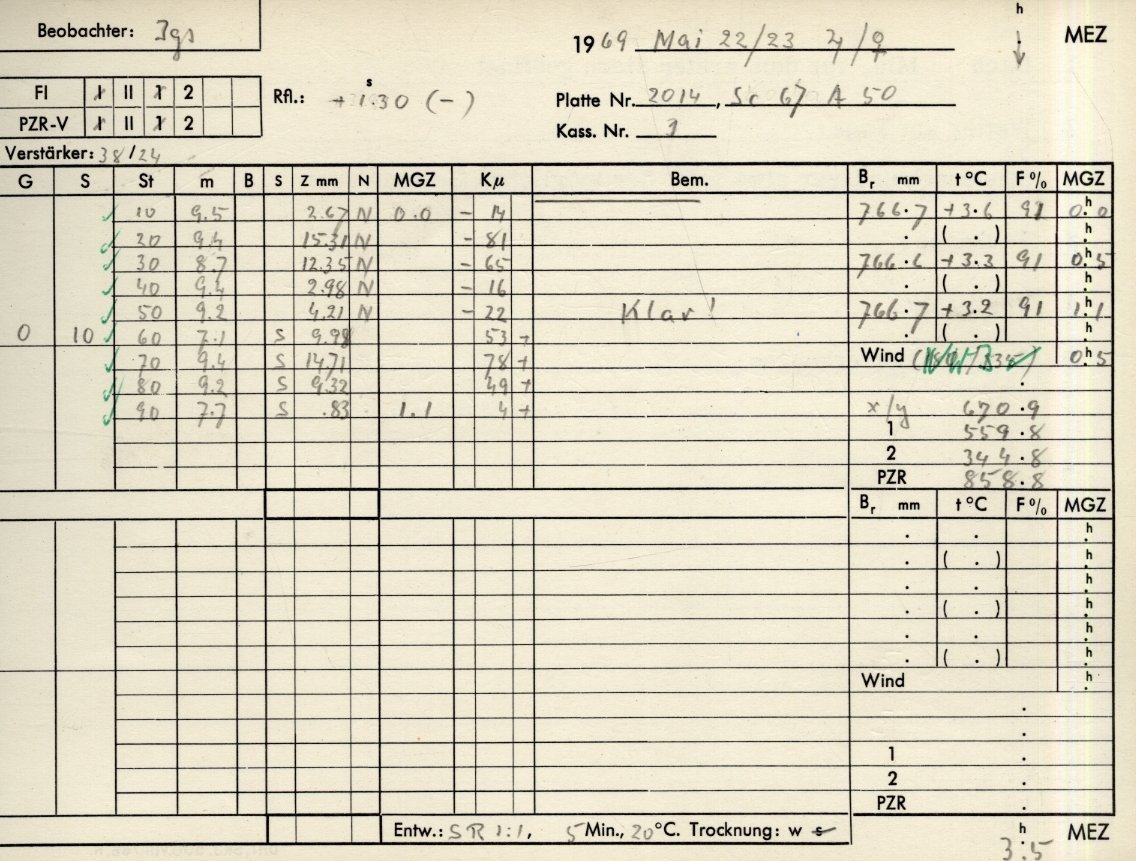 Beobachter: Jgs
h
1969 Mai 22/23 ♃/♀ MEZ
FI 1 II 1 2
PZR-V 1 II 1 2
Rfl.: + 1ˢ.30 (-)
Platte Nr. 2014, Sc 67 A 50
Kass. Nr. 1
Verstärker: 38/24
G S St m B S Z mm N MGZ Kμ Bem. Bᵣ mm t °C F % MGZ
10 9.5 2.67 N 0.0 - 14 766.7 +3.6 91 0ʰ.0
20 9.4 15.31 N - 81 . ( . ) h.
30 8.7 12.35 N - 65 766.6 +3.3 91 0ʰ.5
40 9.4 2.98 N - 16 . ( . ) h.
50 9.2 4.21 N - 22 Klar! 766.7 +3.2 91 1ʰ.1
0 10 60 7.1 S 9.98 53 + . ( . ) h.
70 9.4 S 14.71 78 + Wind 0ʰ.5
80 9.2 S 9.32 49 + .
90 7.7 S .83 1.1 4 + x/y 670.9
1 559.8
2 344.8
PZR 858.8
Bᵣ mm t °C F % MGZ
. . h.
. ( . ) h.
. . h.
. ( . ) h.
. . h.
. ( . ) h.
Wind h.
.
.
1 .
2 .
PZR .
Entw.: SR 1:1, 5 Min., 20 °C. Trocknung: w s
3ʰ.5 MEZ